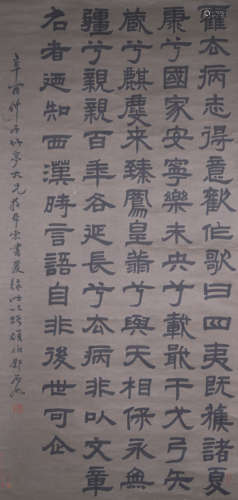 霍去病志得意歡作歌曰四夷既獲諸夏
康兮國家安寧樂未央兮載戢干戈弓矢
藏兮麒麐來臻鳳皇翔兮與天相保永無
疆兮親親百年各延長兮去病非以文章
名者迺知西漢時言語自非後世可企
辛酉仲 亭大兄